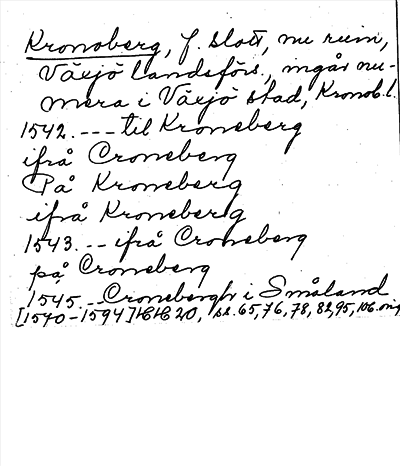 Kronoberg, f. slott, nu ruin,
Växjö landsförs., ingår nu-
mera i Växjö stad, Kronob. l.
1542. --- til Kroneberg
ifrå Croneberg
På Kroneberg
ifrå Kroneberg
1543. -- ifrå Croneberg
på Croneberg
1545. -- Cronebergh i Småland
[1540-1594] HH 20, s. 65, 76, 78, 82, 95, 106.